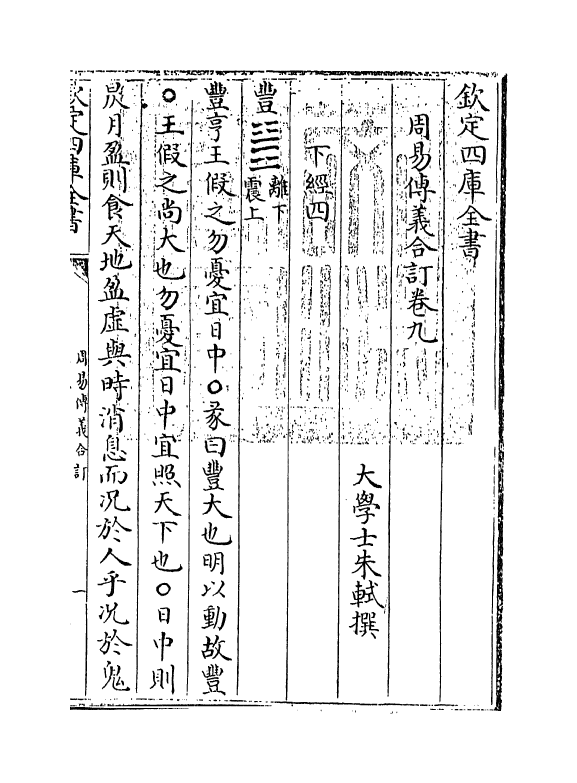 欽定四庫全書
周易傳義合訂卷九
大學士朱軾撰
下經四
豐䷶離下震上
豐亨王假之勿憂宜日中○彖曰豐大也明以動故豐
○王假之尚大也勿憂宜日中宜照天下也○日中則
昃月盈則食天地盈虛與時消息而况於人乎况於鬼
欽定四庫全書
周易傳義合訂
一